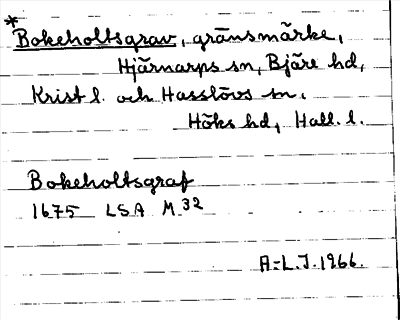 *
Bokeholtsgrav, gränsmärke,
Hjärnarps sn, Bjäre hd,
Krist l. och Hasslövs sn.
Höks hd, Hall. l.
Bokeholtsgraf
1675 LSA M 32
A-L.J. 1966.